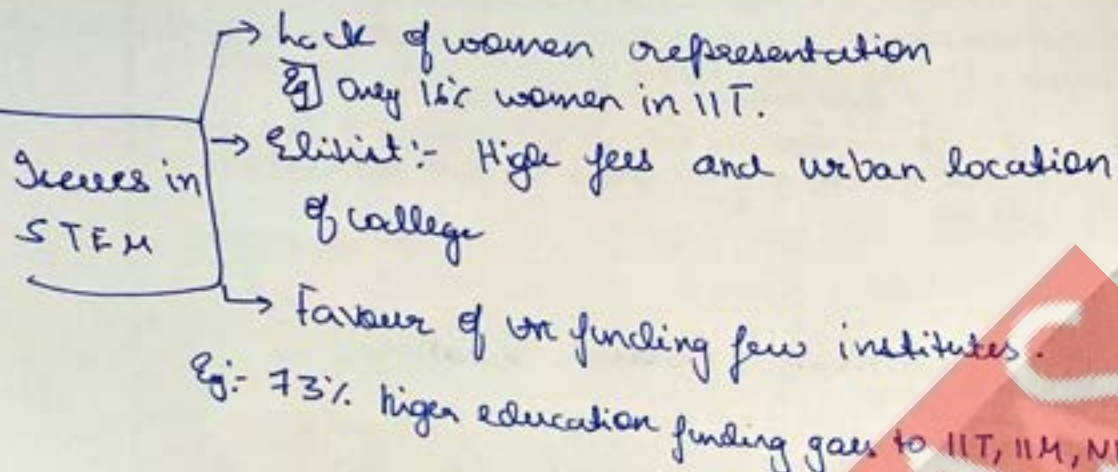 Issues in
STEM
→ Lack of women representation
Eg] Only 16% women in IIT.
→ Elitist:- High fees and urban location
of college
→ Favour of funding few institutes.
Eg:- 73% higen education funding goes to IIT, IIM,